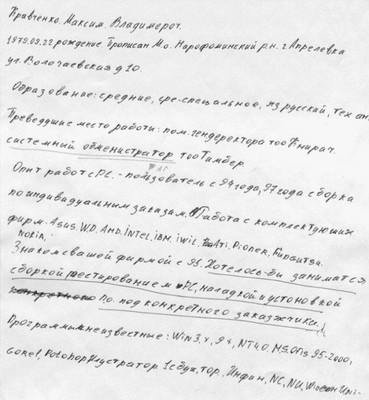 Кравченко. Максим. Владимерот.
1979.09.22 рождение Прописан М.о. Нарофоминский р.н. г Апрелевка
ул. Волочаевская д 10.
Образование: средние, сре-спецальное, яз русский, тех ан.
Преведущие место работы: пом. гендеректора тоо
системный обменистратор тоо Тимбер
Опыт работ с PC. - пользователь с 94 года, 97 года сборка
по индивидуальным заказим. Работа с комплектующих
фирм. Asus. W.D. AMD. intel. iBM. iwil. Ati, Pioner. Funsutsu.
nokia.
Знаком с вашей фирмой с 95. Хотелось-бы заниматся
сборкой тестированием PC, наладкой и устоновкой
По. под конкретного заказжчики.
Программы мне известные: Win 3.x, 9x, NT 4.0. MS. Ofis 95-2000,
Corel, Potohop Илустратор 1с бух, тор. Инфин, NC, NU, Win